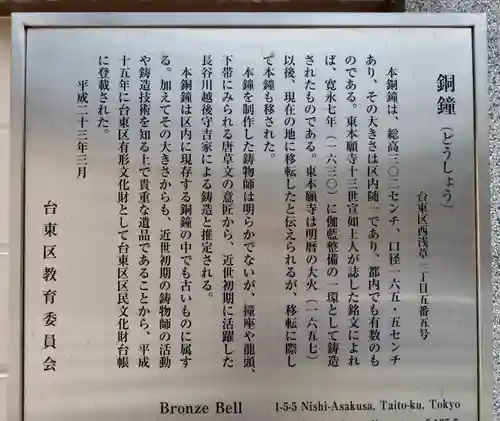 銅鐘(どうしょう)
台東区西浅草一丁目五番五号
本銅鐘は、総高三〇二センチ、口径一六五・五センチ
あり、その大きさは区内随一であり、都内でも有数のも
のである。東本願寺十三世宣如上人が誌した銘文によれ
ば、寛永七年(一六三〇)に伽藍整備の一環として鋳造
されたものである。東本願寺は明暦の大火(一六五七)
以後、現在の地に移転したと伝えられるが、移転に際し
て本鐘も移された。
本鐘を制作した鋳物師は明らかでないが、撞座や龍頭、
下帯にみられる唐草文の意匠から、近世初期に活躍した
長谷川越後守吉家による鋳造と推定される。
本銅鐘は区内に現存する銅鐘の中でも古いものに属す
る。加えてその大きさからも、近世初期の鋳物師の活動
や鋳造技術を知る上で貴重な遺品であることから、平成
十五年に台東区有形文化財として台東区区民文化財台帳
に登載された。
平成二十三年三月
台東区教育委員会
Bronze Bell
1-5-5 Nishi-Asakusa, Taito-ku, Tokyo